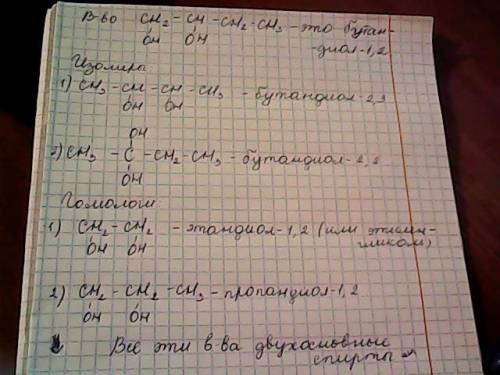 В-во CH2-CH-CH2-CH3 - это бутан-
OH OH -диол-1,2
Изомеры
1) CH3-CH-CH-CH3 - бутандиол-2,3
OH OH
OH
2) CH3-C-CH2-CH3 - бутандиол-2,2
OH
Гомологи
1) CH2-CH2 - этандиол-1,2 (или этилен-
OH OH гликоль)
2) CH2-CH2-CH3 - пропандиол-1,2
OH OH
Все эти в-ва двухосновные
спирты